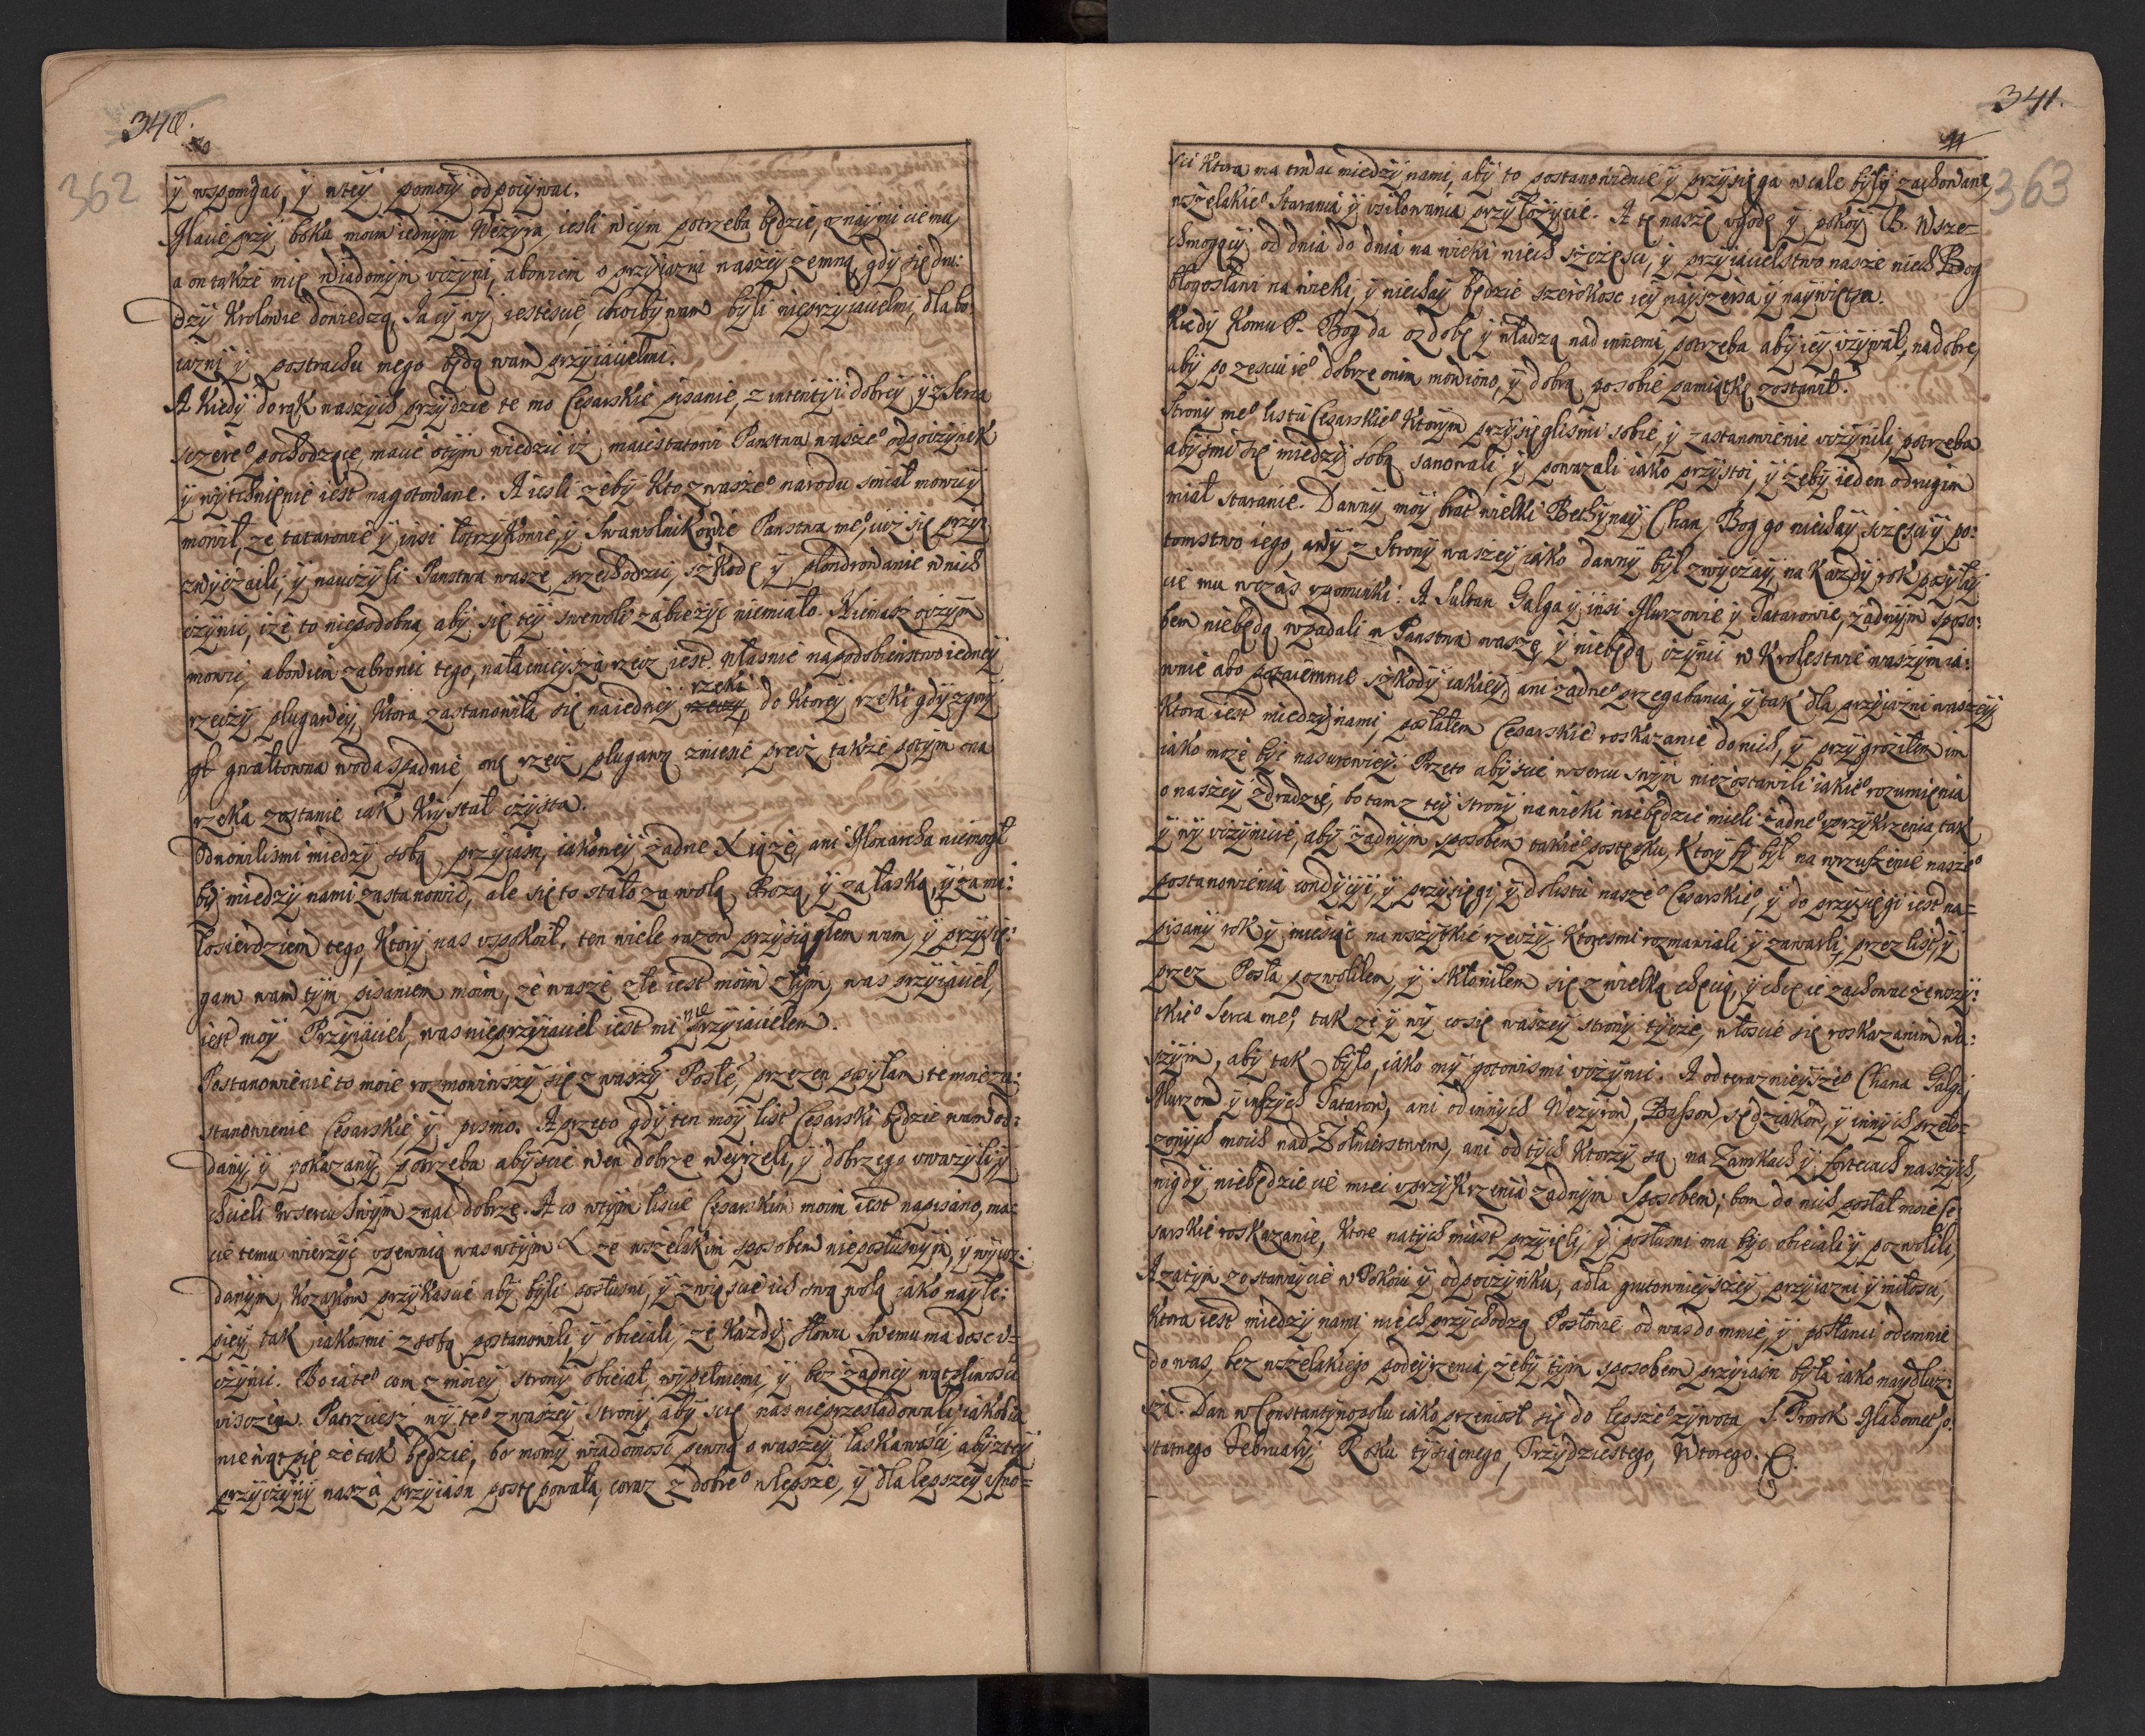 340.
40
362
ÿ wspomgac, ÿ wteÿ pomocÿ odpocÿwac.
Macie przÿ boku moim iednÿm Wezÿra, iesli wczÿm potrzeba będzie, oznaÿmicie mu,
a on także mię wiadomÿm vczÿni, abowiem o przÿiazni naszeÿ zemną gdÿ się dru:
dzÿ Krolowie dowiedzą, Sacÿ wÿ iestescie, choćbÿ wam bÿli nieprzÿiacielmi, dla bo:
iazni ÿ postrachu mego będą wam przÿiacielmi.
A Kiedÿ do rąk naszÿch przÿdzie te mo Cesarskie pisanie, z intentÿi dobreÿ ÿ z serca
sczere° pochodzące, macie otÿm wiedziec iż maiestatowi Panstwa wasze° odpoczÿnek
ÿ wÿtchnienie iest nagotowane. A iesli zebÿ Kto z wasze° narodu smiał mowicÿ
mowił, ze tatarowie ÿ insi łotrzÿkowie, ÿ Swawolnikowie Panstwa me°, iuż się przÿ:
zwÿczaili, ÿ nauczÿli Panstwa wasze przechodzić, szkodę ÿ plondrowanie w nich
czÿnic, iże to niepodobna, abÿ się teÿ swewoli zabieżÿc niemiało. Niemasz oczÿm
mowic, abowiem zabronic tego, nałacnieÿsza rzecz iest. Własnie napodobienstwo iedneÿ
rzeczÿ plugaweÿ, Ktora zastanowiła się na iedneÿ rzeki, do Ktoreÿ rzeki gdÿ z gorÿ
gł gwałtowna woda spadnie, onę rzecz plugawą zniesie precz, także potÿm ona
rzeka zostanie iak Krÿstał czÿsta.
Odnowilismi miedzÿ sobą przÿiasn, iakoweÿ żadne Xiąże, ani Monarcha niemogł
bÿ miedzÿ nami zastanowic, ale się to stało za wolą Bożą, ÿ za łaską, ÿ za mi:
łosierdziem tego, Ktorÿ nas vspokoił, ten wiele razow przÿsiągłem wam, ÿ przÿsię:
gam wam tÿm pisaniem moim, ze wasze złe iest moim złÿm, was przÿiaciel,
iest moÿ Przÿiaciel, was nieprzÿiaciel iest mi nie przÿiacielem.
Postanowienie to moie rozmowiwszÿ się z waszÿ Posłe, przezen posÿłam te moie za:
stanowienie Cesarskie ÿ pismo. A przeto gdÿ ten moÿ list Cesarski będzie wam od:
danÿ, ÿ pokazanÿ potrzeba abÿscie wen dobrze weÿrzeli, ÿ dobrze go vważÿli, ÿ
chcieli w sercu swÿm znac dobrze. A co wtÿm liscie Cesarskim moim iest napisano, ma:
cie temu wierzÿc vpewnią was wtÿm ze wszelakim sposobem nieposłusnÿm, ÿ wÿuz:
danÿm, Kozakom przÿkascie abÿ bÿli posłusni, ÿ zwięscie ich swą wolą iako naÿle:
pieÿ tak, iakosmi z sobą postanowili, ÿ obiecali, że Każdÿ słowu swemu ma dosc v:
czÿnic. Bo ia te° com z moieÿ stronÿ obiecał, wÿpełniemi, ÿ bez żadneÿ wątpliwosci
visczę. Patrzciesz wÿ te° z waszeÿ stronÿ, abÿ scię nas nieprzesladowali, iakobÿ
nie wątpię że tak będzie, bo momÿ wiadomosc pewną o waszeÿ łaskawości, abÿ z teÿ
przÿczÿnÿ nasza przÿiasn postępowała, coraz z dobre° w lepsze, ÿ dla lepszeÿ vfno=
341.
41
363
sci Ktora ma trwac miedzÿ nami, abÿ to postanowienie ÿ przÿsięga wcale bÿłÿ zachowane,
wszelakie° starania ÿ vsiłowania przÿłożÿcie. A tę naszę vgodę ÿ pokoÿ B. Wsze=
chmogącÿ od dnia do dnia na wieki niech szczęsci, ÿ przÿiacielstwo nasze niech Bog
błogosławi na wieki, ÿ niechaÿ będzie szerokosc ieÿ naÿszersza ÿ naÿwiętsza.
Kiedÿ Komu P. Bog da ozdobę ÿ władzą nad innemi, potrzeba abÿ ieÿ vżÿwał, nadobre,
abÿ po zesciu ie° dobrze onim mowiono, ÿ dobrą po sobie pamiątkę zostawił.
Stronÿ me° listu Cesarskie° Ktorÿm przÿsięglismi sobie, ÿ zastanowienie vczÿnili, potrzeba
abÿsmi się miedzÿ sobą sanowali, ÿ powazali iako przÿstoi, ÿ żebÿ ieden odrugim
miał staranie. Dawnÿ moÿ brat wielki Bechÿnaÿ Chan, Bog go niechaÿ szczęsci ÿ po:
tomstwo iego, awÿ z stronÿ waszeÿ iako dawnÿ bÿł zwÿczaÿ, na Każdÿ rok posÿłaÿ
cie mu wczas vpominki: A Sultan Galga ÿ insi Murzowie ÿ Tatarowie, żadnÿm sposo:
bem niebędą wpadali w Panstwa wasze, ÿ niebędą czÿnic w Krolestwie waszÿm ia:
wnie abo potaiemnie szkodÿ iakieÿ, ani żadne° przegabania, ÿ tak dla przÿiazni naszeÿ
Ktora iest miedzÿ nami, posłałem Cesarskie roskazanie do nich, ÿ przÿgroziłem im
iako może bÿc nasurowieÿ. Przeto abÿscie w sercu swÿm niezostawili iakie° rozumienia
o naszeÿ zdradzie, bo tam z teÿ stronÿ na wieki niebędzie mieli żadne° vprzÿkrzenia, tak
ÿ wÿ vczÿnicie, abÿ żadnÿm sposobem takie° postępku, Ktorÿ bÿ bÿł na wzruszenie nasze°
postanowienia condÿcÿi, ÿ przÿsięgi, ÿ do listu nasze° Cesarskie°, ÿ do przÿsięgi iest na=
pisanÿ rok ÿ miesiąc na wszÿtkie rzeczÿ, Ktoresmi rozmawiali ÿ zawarli, przez list, ÿ
przez Posła pozwoliłem, ÿ skłoniłem się z wielką chęcią, ÿ chcę ie zachowac ze wszÿ:
tkie° serca me°, tak że ÿ wÿ co się waszeÿ stronÿ tÿcze, włoscie się roskazanim wa:
szÿm, abÿ tak bÿło, iako mÿ gotowismi vczÿnic. A od terazniejsze° Chana Galgi,
Murzow ÿ inszÿch Tatarow, ani od innÿch Wezÿrow, Bassow, sędziakow, ÿ innÿch przeło=
żonÿch moich nad Zołnierstwem, ani od tÿch Ktorzÿ są na Zamkach ÿ fortecach naszÿch,
nigdÿ niebędziecie miec vprzÿkrzenia żadnÿm sposobem; bom do nich posłał moie Ce
sarskie roskazanie, Ktore natÿchmiast przÿięli, ÿ posłusni mu bÿc obiecali ÿ pozwolili,
A zatÿm zostawaÿcie w Pokoiu ÿ odpoczÿnku, a dla gruntownieÿszeÿ przÿiazni ÿ miłosci,
Ktora iest miedzÿ nami niech przÿchodzą Posłowie od was do mnie, ÿ posłanci odemnie
do was, bez wszelakiego podeÿrzenia, żebÿ tÿm sposobem przÿiasn bÿła iako naÿdłuż:
sza. Dan w Constantÿnopolu iako przeniosł się do lepsze° żÿwota, S. Prorok Mahomet, o:
statnego Februarÿ, Roku tÿsiącnego, Trzÿdziestego, Wtorego.